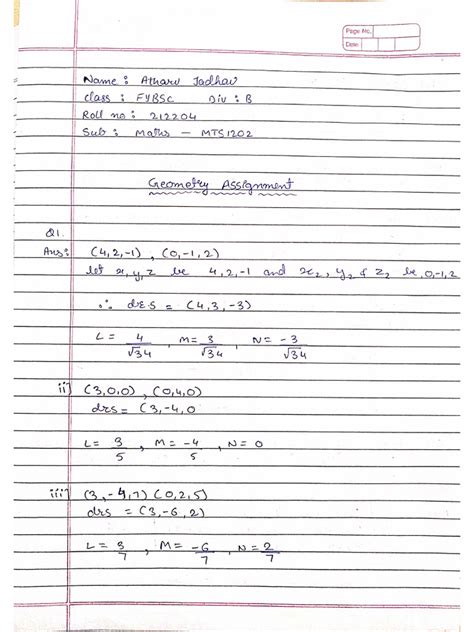 Page No.
Date:
Name : Atharv Jadhav
class : FYBSc Div : B
Roll no : 212204
Sub : Maths - MTS1202
Geometry Assignment
Q1.
Ans: (4,2,-1), (0,-1,2)
let x,y,z be 4,2,-1 and x₂, y₂ & z₂ be 0,-1,2
∴ drs = (4,3,-3)
L = 4/√34 , M = 3/√34 , N = -3/√34
ii) (3,0,0), (0,4,0)
drs = (3,-4,0
L = 3/5 , M = -4/5 , N = 0
iii) (3,-4,7) (0,2,5)
drs = (3,-6,2)
L = 3/7 , M = -6/7 , N = 2/7